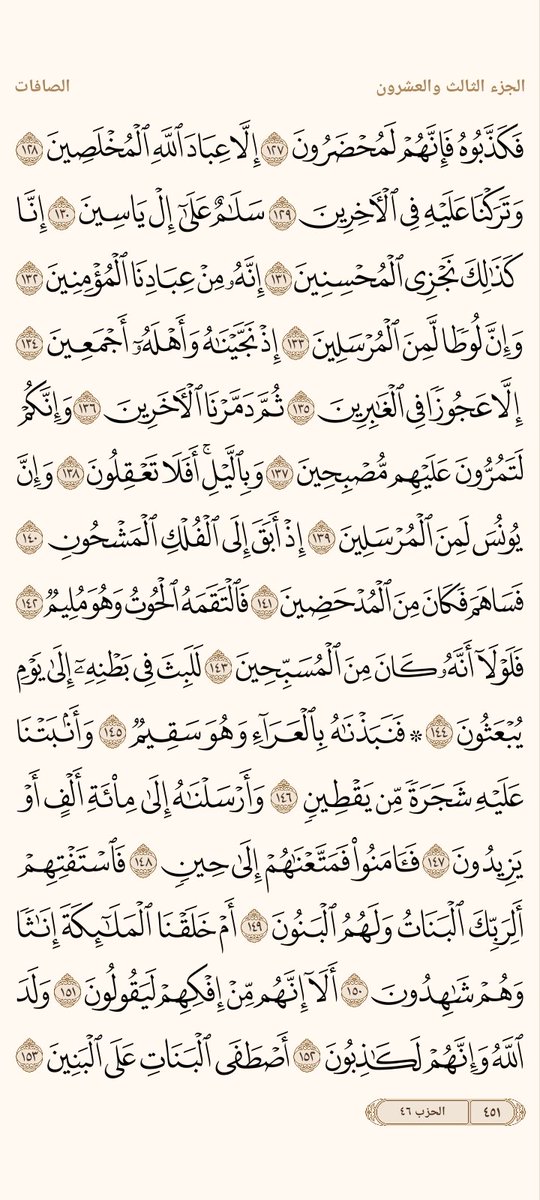 الجزء الثالث والعشرون الصافات
فَكَذَّبُوهُ فَإِنَّهُمْ لَمُحْضَرُونَ ١٢٧ إِلَّا عِبَادَ ٱللَّهِ ٱلْمُخْلَصِينَ ١٢٨
وَتَرَكْنَا عَلَيْهِ فِى ٱلْـَٔاخِرِينَ ١٢٩ سَلَـٰمٌ عَلَىٰٓ إِلْ يَاسِينَ ١٣٠ إِنَّا
كَذَٰلِكَ نَجْزِى ٱلْمُحْسِنِينَ ١٣١ إِنَّهُۥ مِنْ عِبَادِنَا ٱلْمُؤْمِنِينَ ١٣٢
وَإِنَّ لُوطًا لَّمِنَ ٱلْمُرْسَلِينَ ١٣٣ إِذْ نَجَّيْنَـٰهُ وَأَهْلَهُۥٓ أَجْمَعِينَ ١٣٤
إِلَّا عَجُوزًا فِى ٱلْغَـٰبِرِينَ ١٣٥ ثُمَّ دَمَّرْنَا ٱلْـَٔاخَرِينَ ١٣٦ وَإِنَّكُمْ
لَتَمُرُّونَ عَلَيْهِم مُّصْبِحِينَ ١٣٧ وَبِٱلَّيْلِ ۗ أَفَلَا تَعْقِلُونَ ١٣٨ وَإِنَّ
يُونُسَ لَمِنَ ٱلْمُرْسَلِينَ ١٣٩ إِذْ أَبَقَ إِلَى ٱلْفُلْكِ ٱلْمَشْحُونِ ١٤٠
فَسَاهَمَ فَكَانَ مِنَ ٱلْمُدْحَضِينَ ١٤١ فَٱلْتَقَمَهُ ٱلْحُوتُ وَهُوَ مُلِيمٌ ١٤٢
فَلَوْلَآ أَنَّهُۥ كَانَ مِنَ ٱلْمُسَبِّحِينَ ١٤٣ لَلَبِثَ فِى بَطْنِهِۦٓ إِلَىٰ يَوْمِ
يُبْعَثُونَ ١٤٤ * فَنَبَذْنَـٰهُ بِٱلْعَرَآءِ وَهُوَ سَقِيمٌ ١٤٥ وَأَنۢبَتْنَا
عَلَيْهِ شَجَرَةً مِّن يَقْطِينٍ ١٤٦ وَأَرْسَلْنَـٰهُ إِلَىٰ مِا۟ئَةِ أَلْفٍ أَوْ
يَزِيدُونَ ١٤٧ فَـَٔامَنُوا۟ فَمَتَّعْنَـٰهُمْ إِلَىٰ حِينٍ ١٤٨ فَٱسْتَفْتِهِمْ
أَلِرَبِّكَ ٱلْبَنَاتُ وَلَهُمُ ٱلْبَنُونَ ١٤٩ أَمْ خَلَقْنَا ٱلْمَلَـٰٓئِكَةَ إِنَـٰثًا
وَهُمْ شَـٰهِدُونَ ١٥٠ أَلَآ إِنَّهُم مِّنْ إِفْكِهِمْ لَيَقُولُونَ ١٥١ وَلَدَ
ٱللَّهُ وَإِنَّهُمْ لَكَـٰذِبُونَ ١٥٢ أَصْطَفَى ٱلْبَنَاتِ عَلَى ٱلْبَنِينَ ١٥٣
٤٥١ الحزب ٤٦